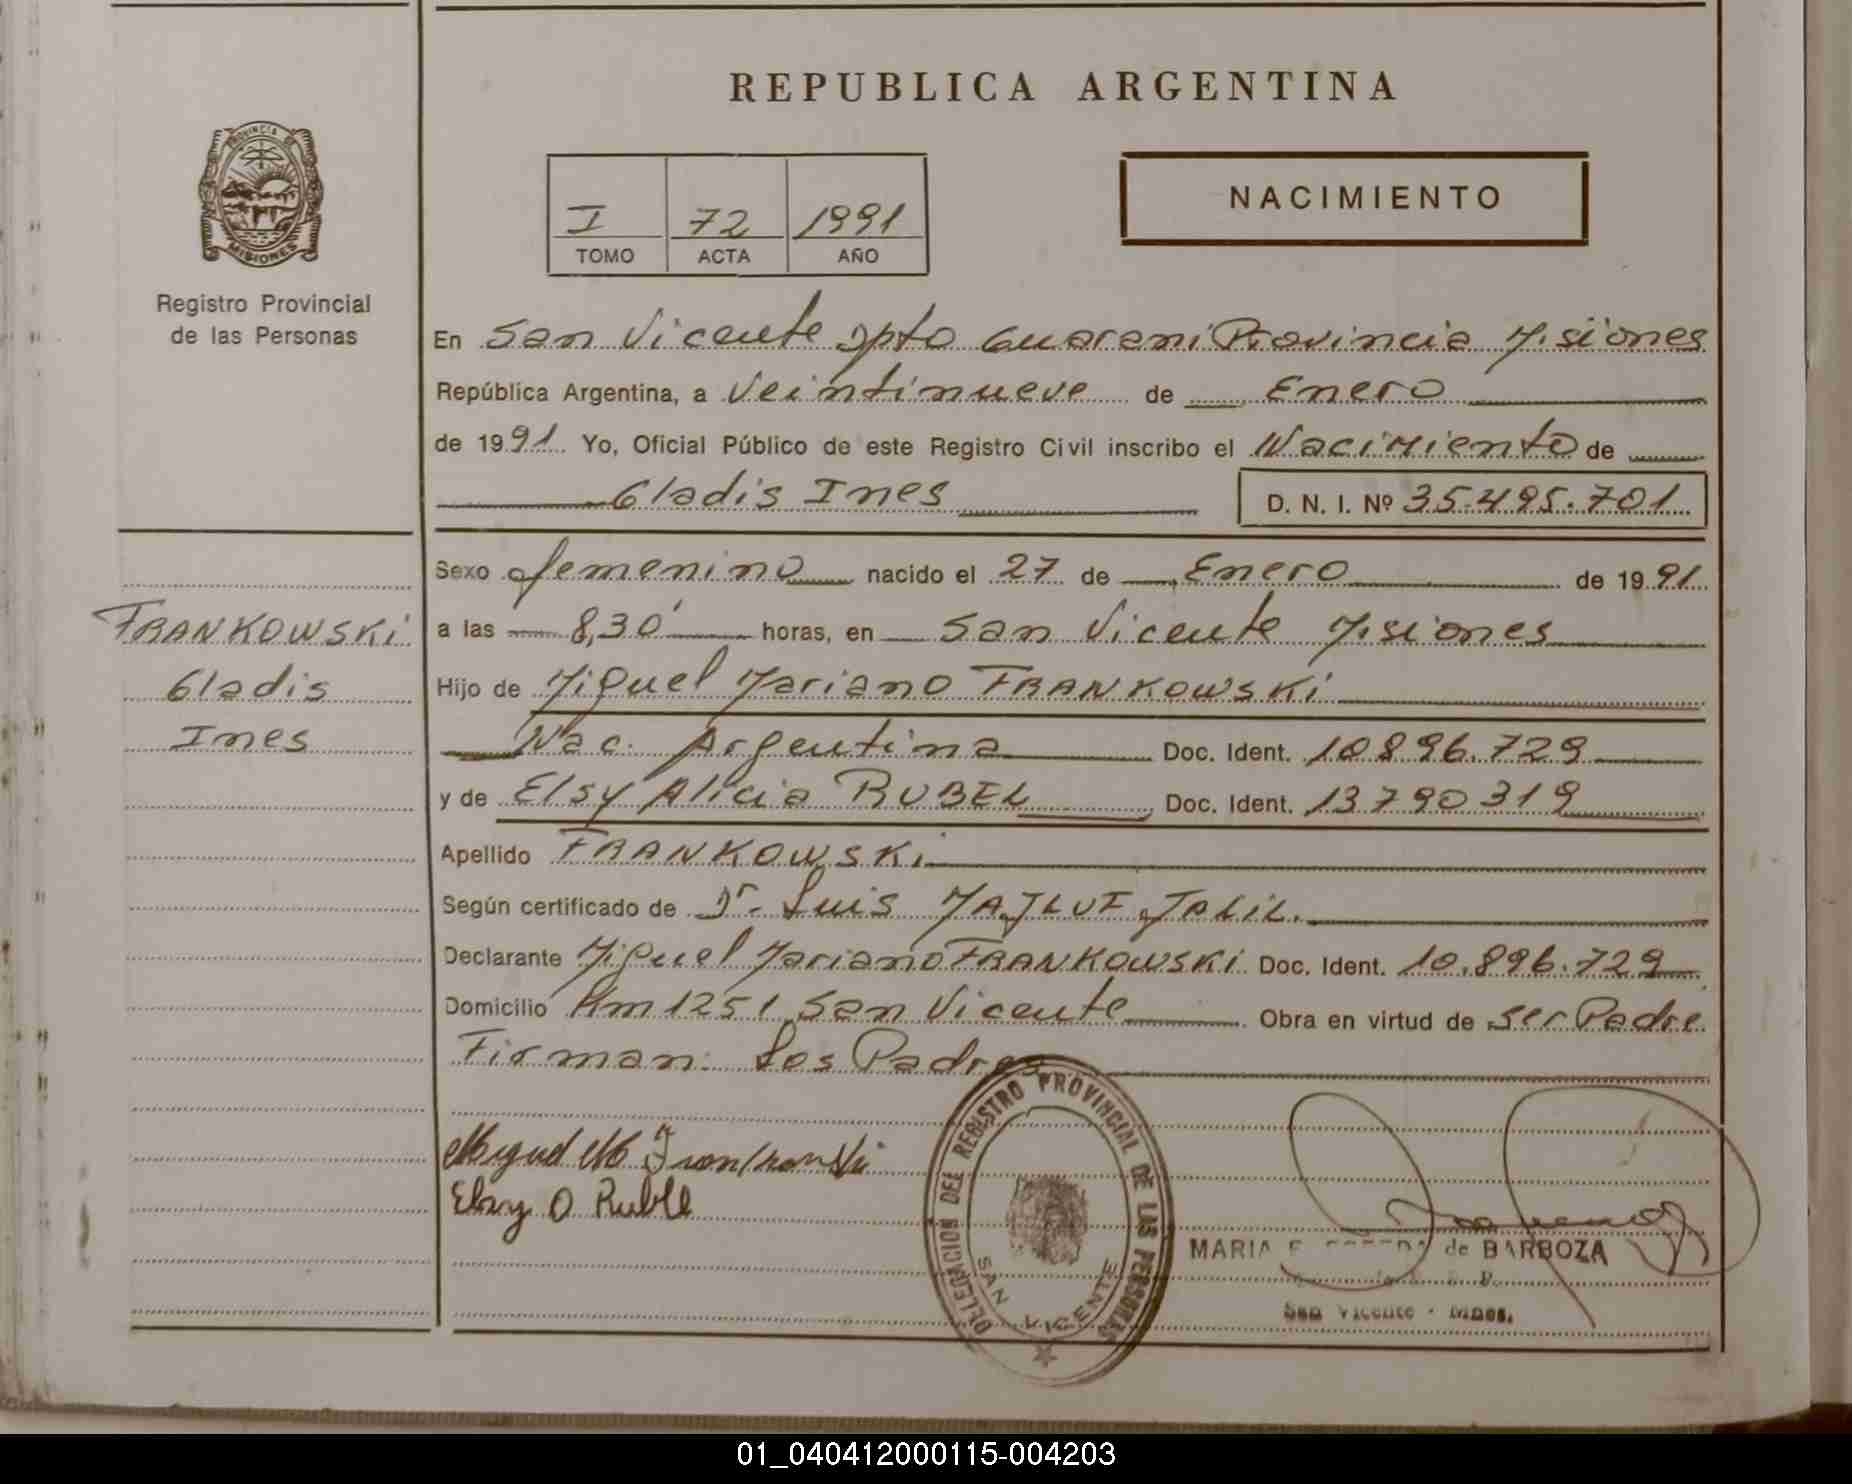 REPUBLICA ARGENTINA
PROVINCIA DE
MISIONES
Registro Provincial
de las Personas
I 72 1991
TOMO ACTA AÑO
NACIMIENTO
En San Vicente Dpto Guarani Provincia Misiones
República Argentina, a Veintinueve de Enero
de 1991 Yo, Oficial Público de este Registro Civil inscribo el Nacimiento de
Gladis Ines D. N. I. Nº 35.495.701
Sexo femenino nacido el 27 de Enero de 1991
FRANKOWSKI
Gladis
Ines
a las 8,30 horas, en San Vicente Misiones
Hijo de Miguel Mariano FRANKOWSKI
Nac. Argentina Doc. Ident. 10.896.729
y de Elsy Alicia RUBEL Doc. Ident. 13.790.319
Apellido FRANKOWSKI
Según certificado de Dr. Luis MAJLUF JALIL.
Declarante Miguel Mariano FRANKOWSKI Doc. Ident. 10.896.729
Domicilio Km 1251 San Vicente Obra en virtud de ser Padre
Firman: Los Padres
Miguel M Frankowski
DELEGACION DEL REGISTRO PROVINCIAL DE LAS PERSONAS
SAN VICENTE
MARIA de BARBOZA
San Vicente - Mnes.
01_040412000115-004203